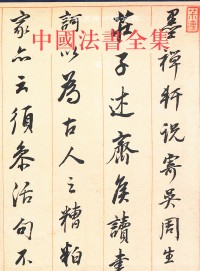 墨禪軒說寄吳周生
莊子述齊侯讀書
訶以為古人之糟粕
家亦云須參活句不
中國法書全集